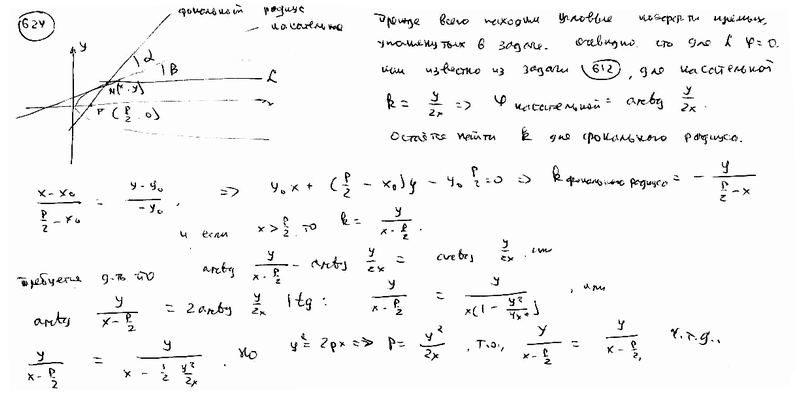 624
фокальный радиус
касательная
y
α
β
L
N(x, y)
F (p/2, 0)
Прежде всего находим угловые коэфф-ты прямых,
упомянутых в задаче. Очевидно, что для L φ = 0.
Как известно из задачи 612, для касательной
k = y/2x => φ касательной = arctg y/2x.
Остаётся найти k для фокального радиуса.
(x - x₀)/(p/2 - x₀) = (y - y₀)/(-y₀), => y₀x + (p/2 - x₀)y - y₀ p/2 = 0 => k фокального радиуса = - y/(p/2 - x)
и если x > p/2, то k = y/(x - p/2).
Требуется д-ть, что arctg y/(x - p/2) - arctg y/2x = arctg y/2x, или
arctg y/(x - p/2) = 2 arctg y/2x | tg: y/(x - p/2) = y/(x(1 - y²/4x²)), или
y/(x - p/2) = y/(x - 1/2 y²/2x). Но y² = 2px => p = y²/2x, т.о., y/(x - p/2) = y/(x - p/2), ч.т.д..